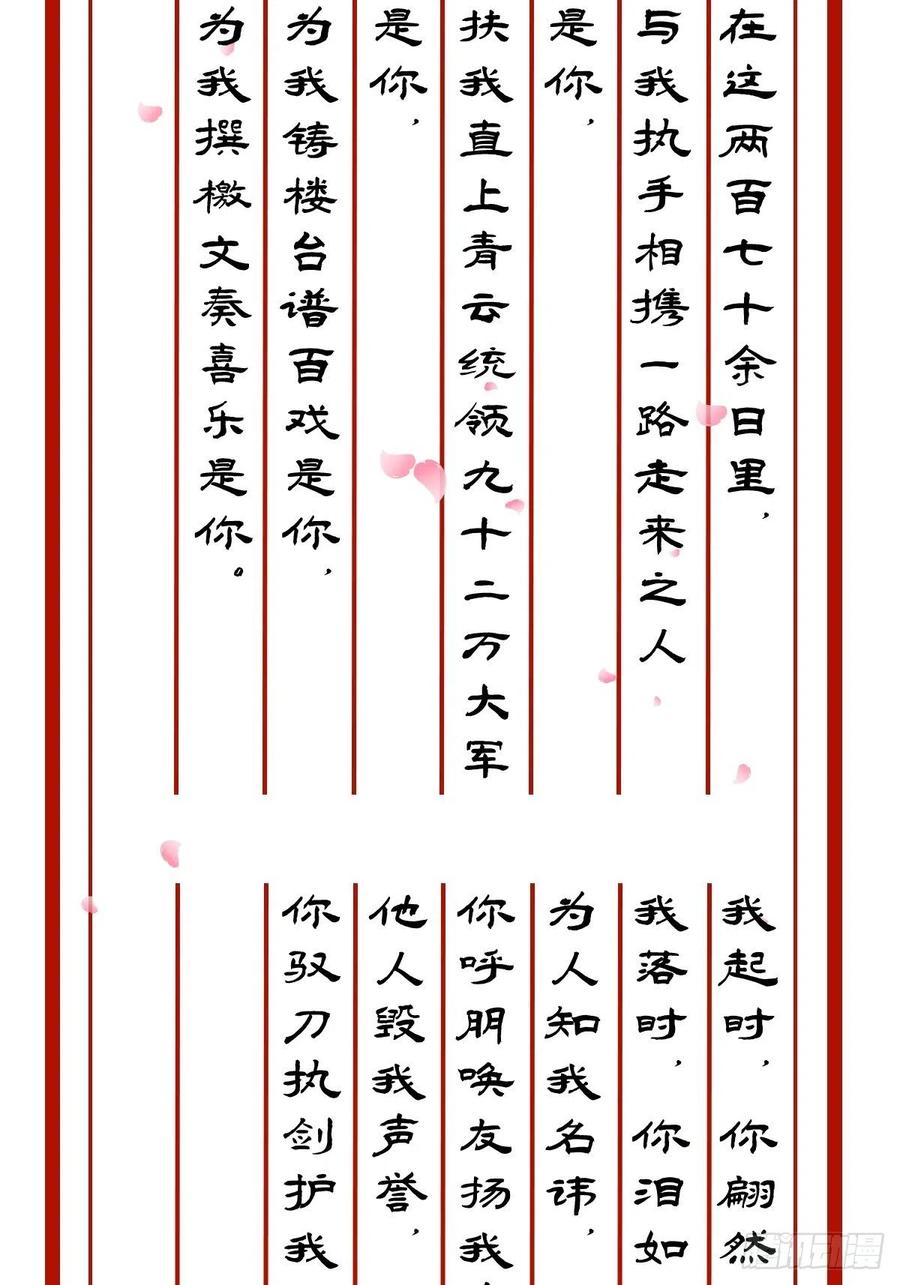 在这两百七十余日里，
与我执手相携一路走来之人
是你，
扶我直上青云统领九十二万大军
是你，
为我铸楼台谱百戏是你，
为我撰檄文奏喜乐是你。
我起时，你翩然
我落时，你泪如
为人知我名讳，
你呼朋唤友扬我
他人毁我声誉，
你驭刀执剑护我
腾讯动漫